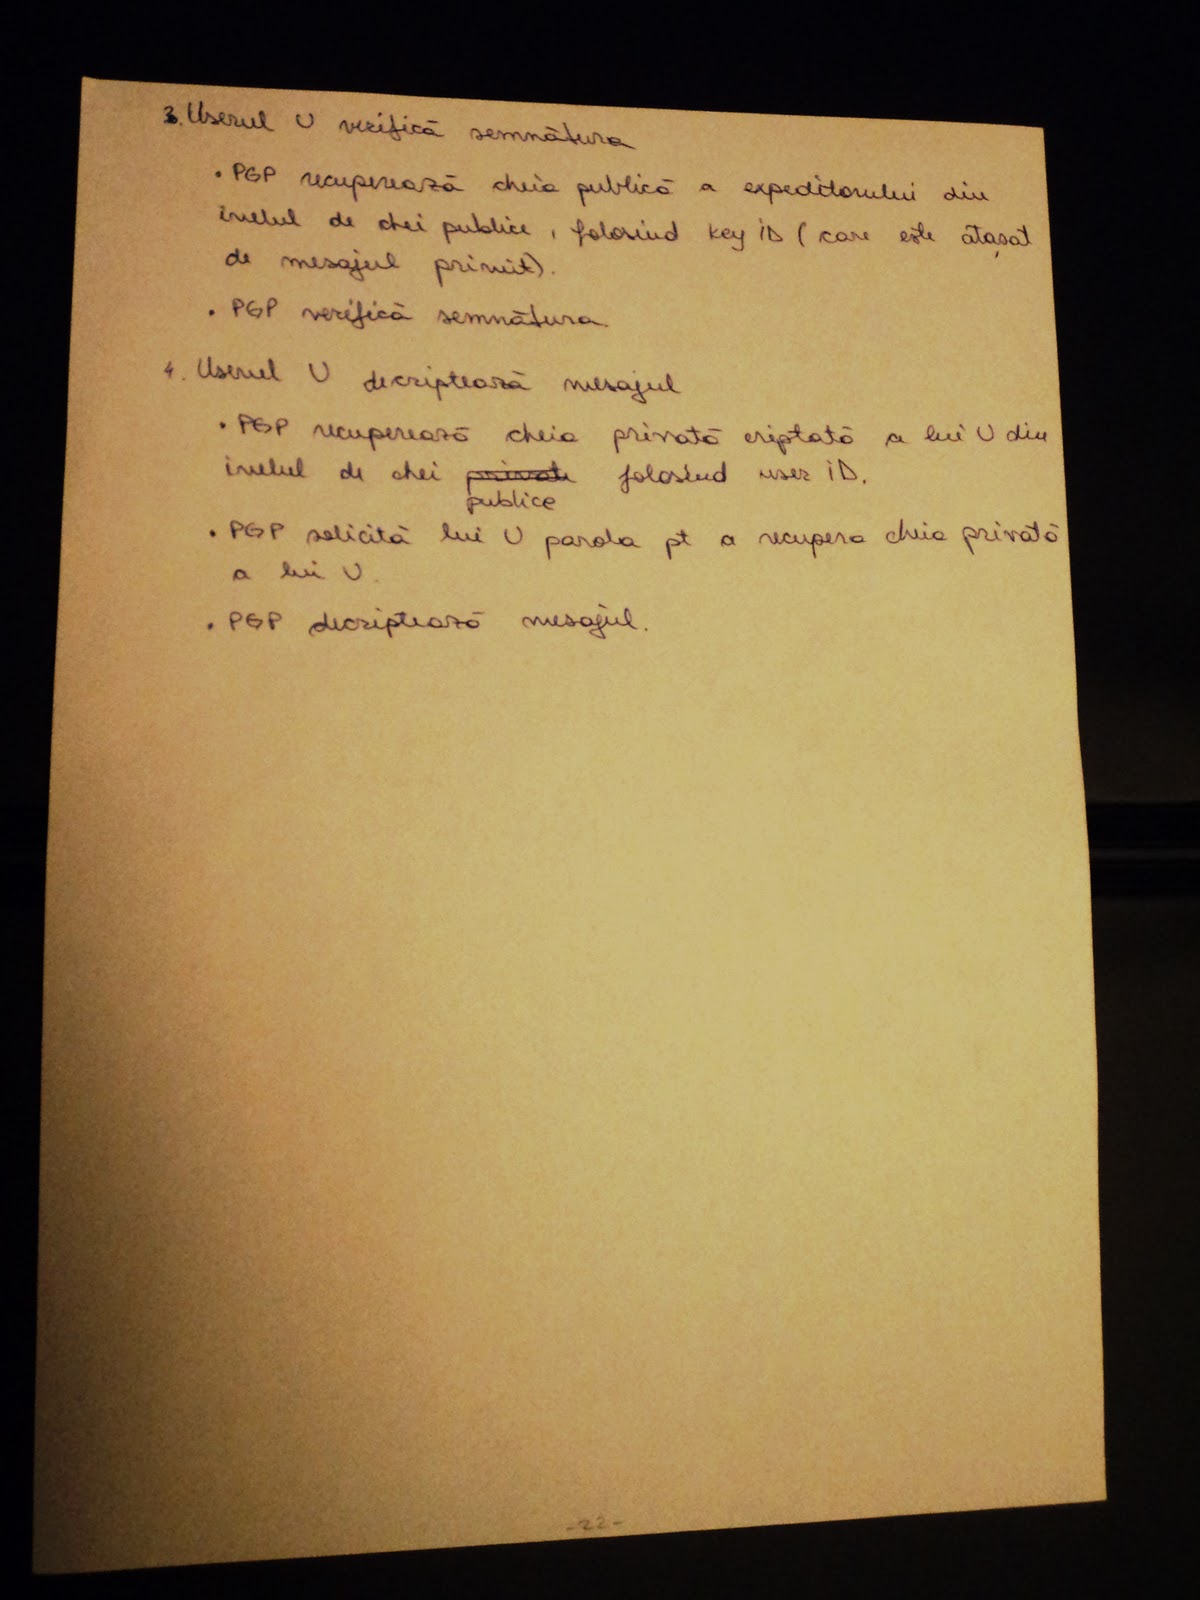 3. Userul U verifică semnătura
• PGP recuperează cheia publică a expeditorului din
inelul de chei publice, folosind key ID (care este atașat
de mesajul primit).
• PGP verifică semnătura.
4. Userul U decriptează mesajul
• PGP recuperează cheia privată criptată a lui U din
inelul de chei private folosind user ID.
publice
• PGP solicită lui U parola pt a recupera cheia privată
a lui U.
• PGP decriptează mesajul.
-22-